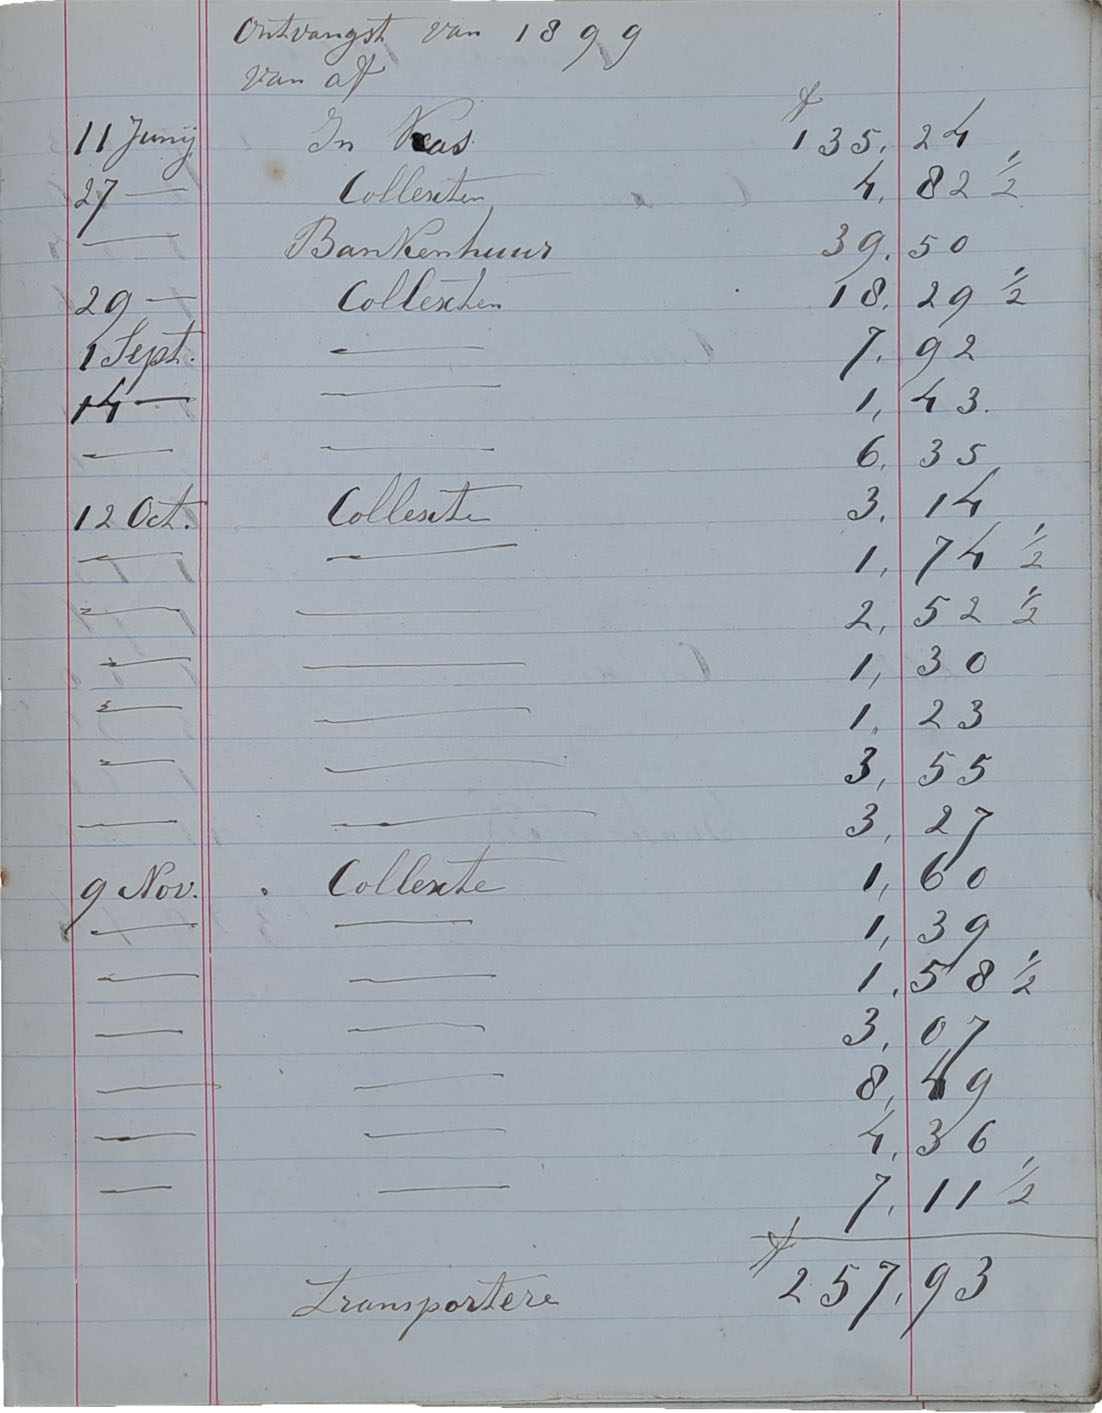 Ontvangst van 1899
van af
ƒ
11 Junij In Kas 135, 24
27 — Collecten 4, 82 ½
— Bankenhuur 39, 50
29 — Collecten 18, 29 ½
1 Sept. — 7, 92
14 — — 1, 43.
— — 6, 35
12 Oct. Collecte 3, 14
— — 1, 74 ½
— — 2, 52 ½
— — 1, 30
— — 1, 23
— — 3, 55
— — 3, 27
9 Nov. Collecte 1, 60
— — 1, 39
— — 1, 58 ½
— — 3, 07
— — 8, 49
— — 4, 36
— — 7, 11 ½
Transportere ƒ 257, 93